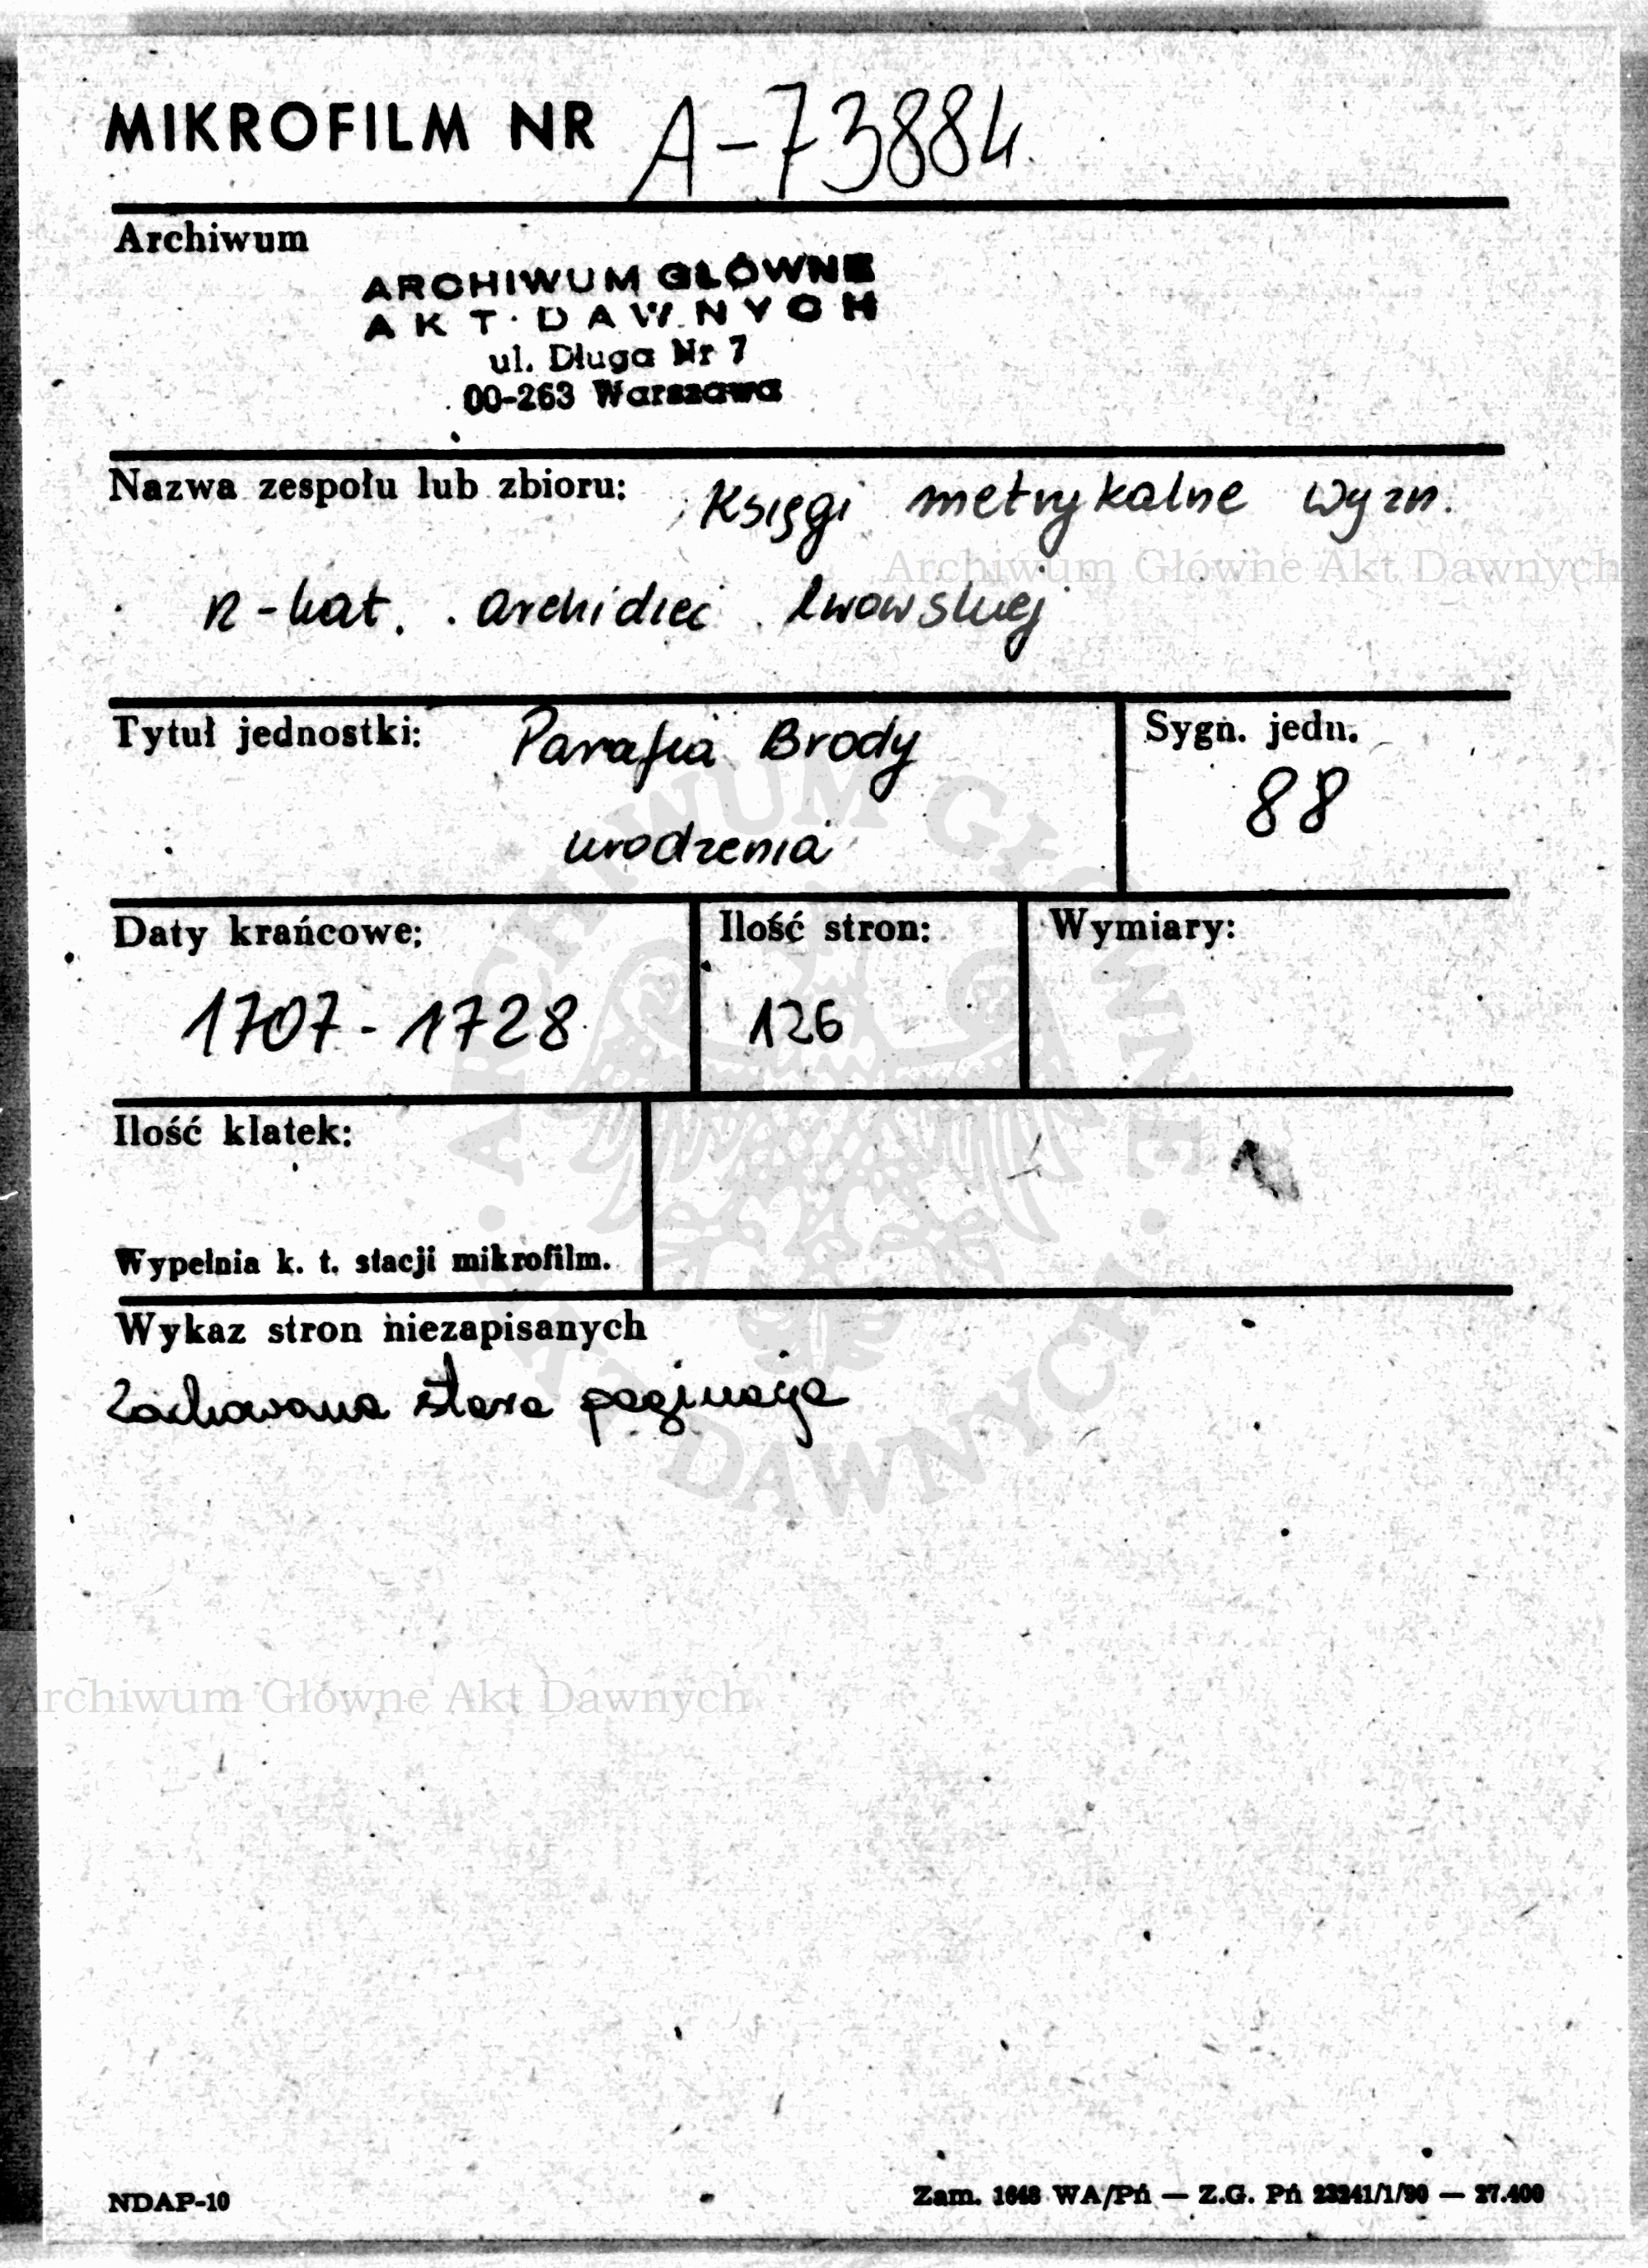 MIKROFILM NR A-73884
Archiwum
ARCHIWUM GŁÓWNE
AKT DAWNYCH
ul. Długa Nr 7
00-263 Warszawa
Nazwa zespołu lub zbioru: Księgi metrykalne wyzn.
Archiwum Główne Akt Dawnych
R-kat. archidiec lwowskiej
Tytuł jednostki: Parafia Brody
urodzenia
Sygn. jedn.
88
Daty krańcowe:
1707 - 1728
Ilość stron:
126
Wymiary:
Ilość klatek:
Wypełnia k. t. stacji mikrofilm.
Wykaz stron niezapisanych
Zachowana stara paginacja
ARCHIWUM GŁÓWNE · AKT DAWNYCH ·
Archiwum Główne Akt Dawnych
NDAP-10
Zam. 1648 WA/Pń — Z.G. Pń 23241/1/90 — 27.400